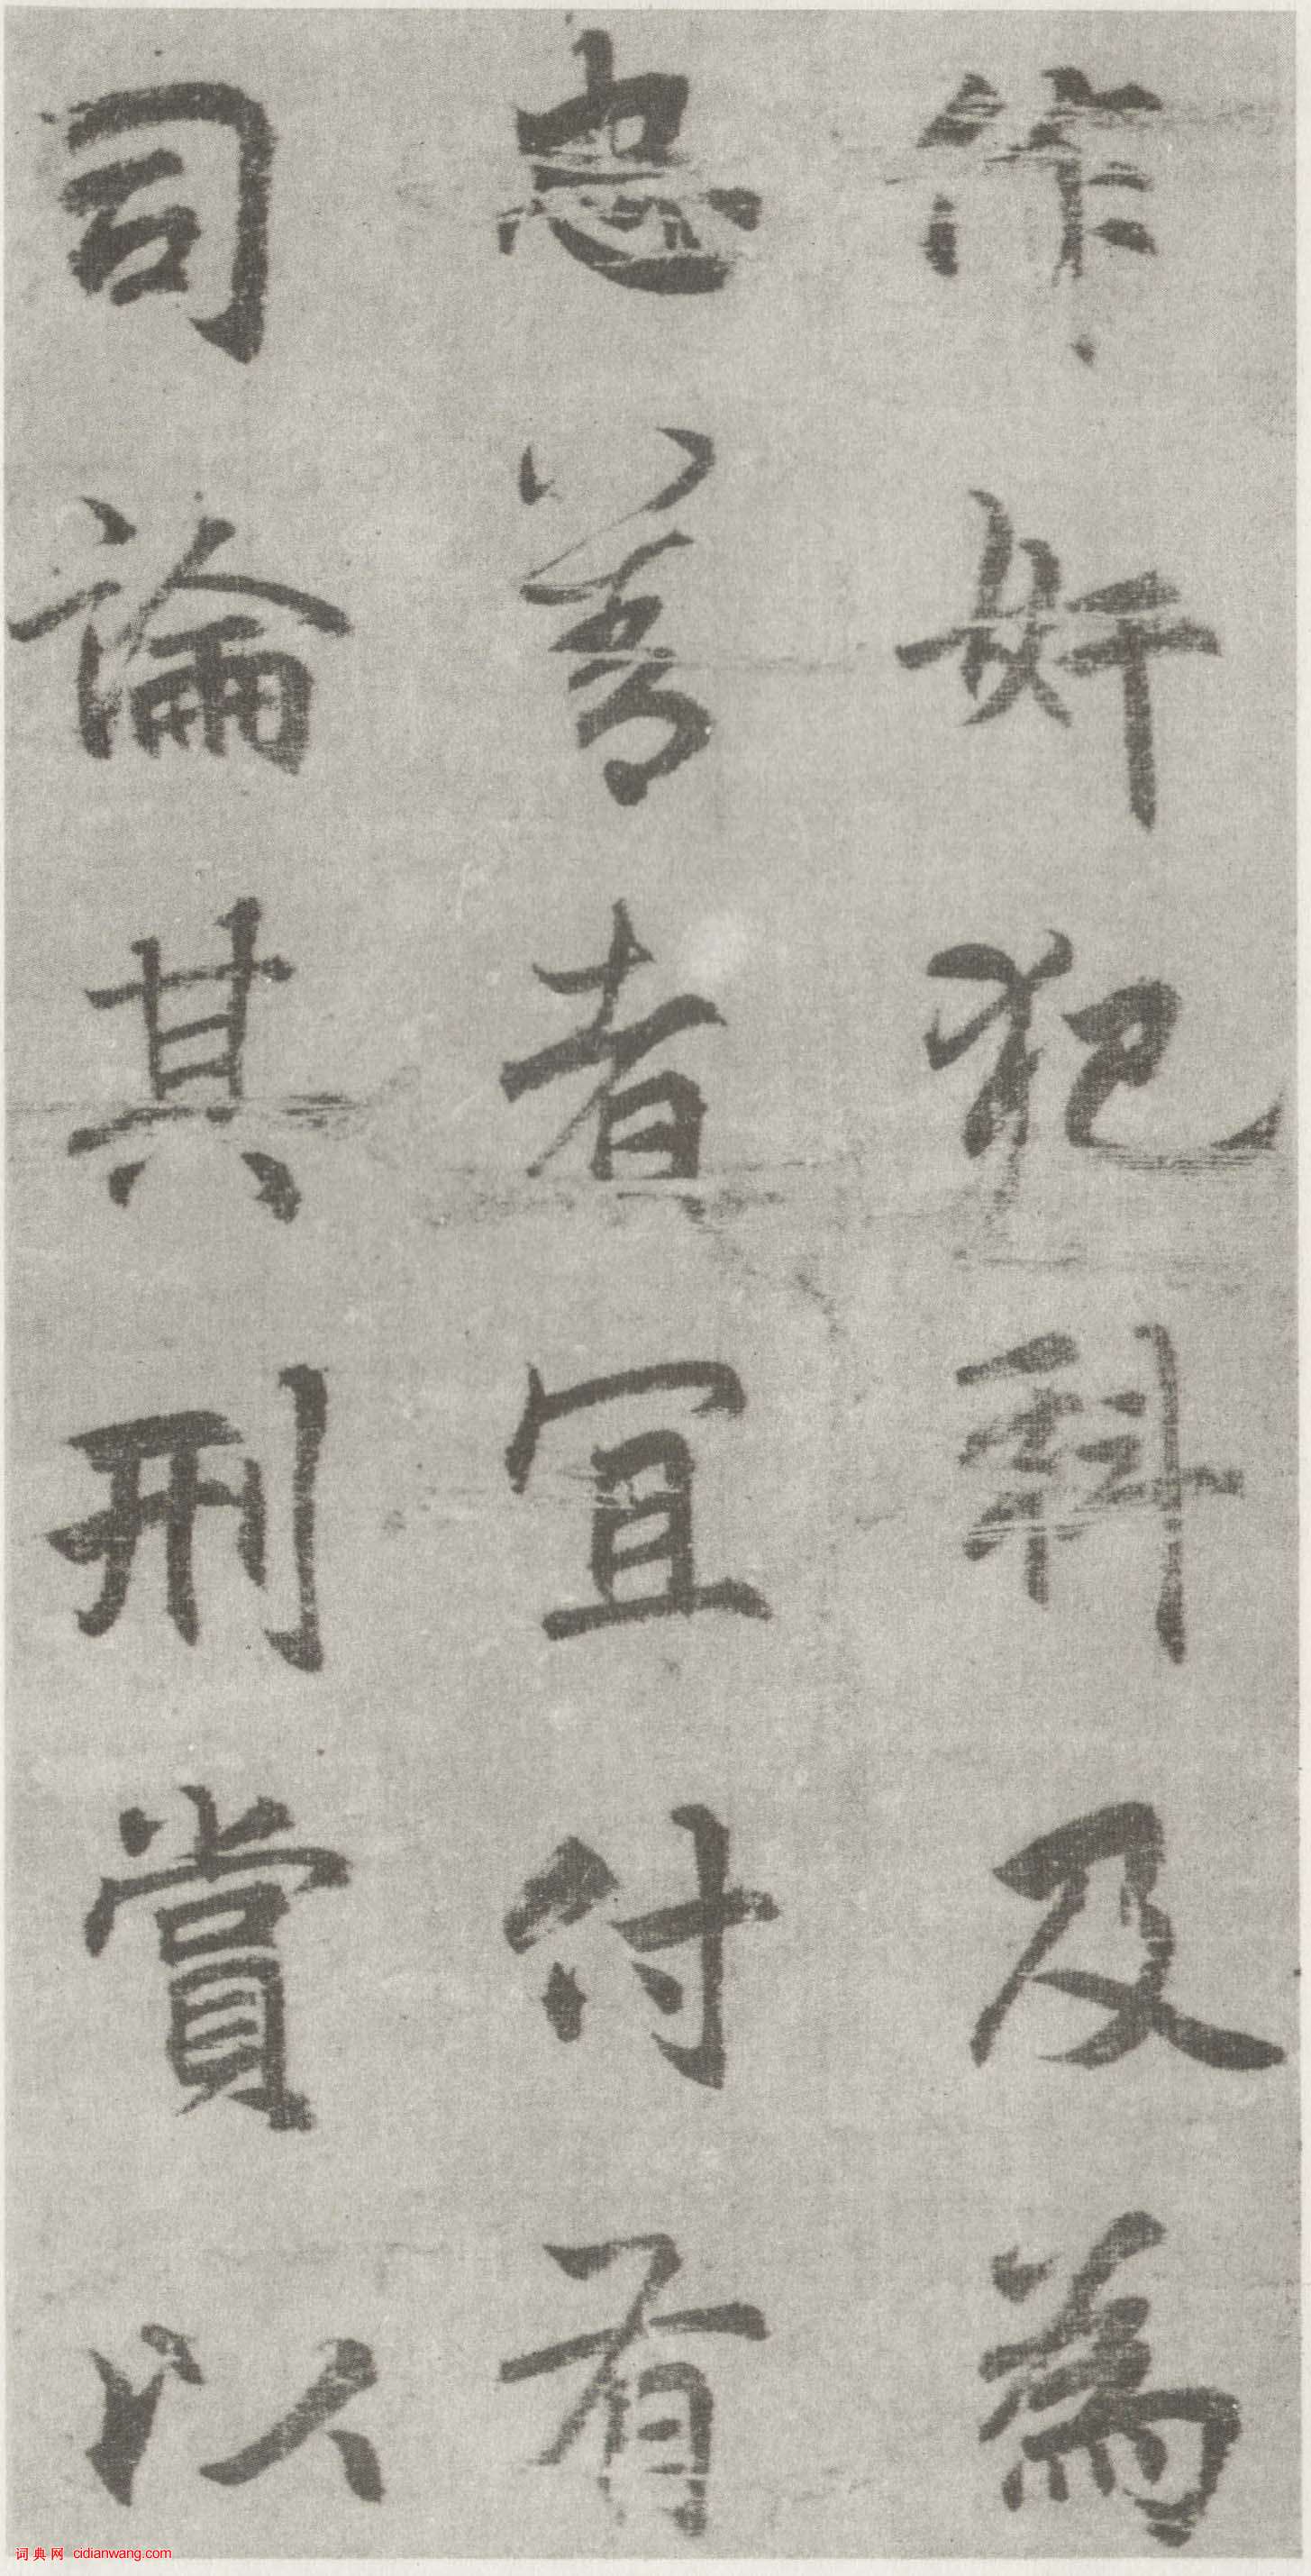 作奸犯科及為
忠善者宜付有
司論其刑賞以
词典网 cidianwang.com